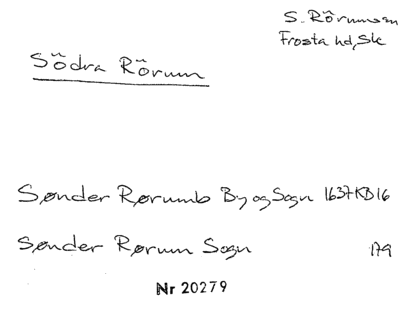 S. Rörums sn
Frosta hd, Skc
Södra Rörum
Sønder Rørumb By og Sogn 1637 KB 16
Sønder Rørum Sogn 179
Nr 20279